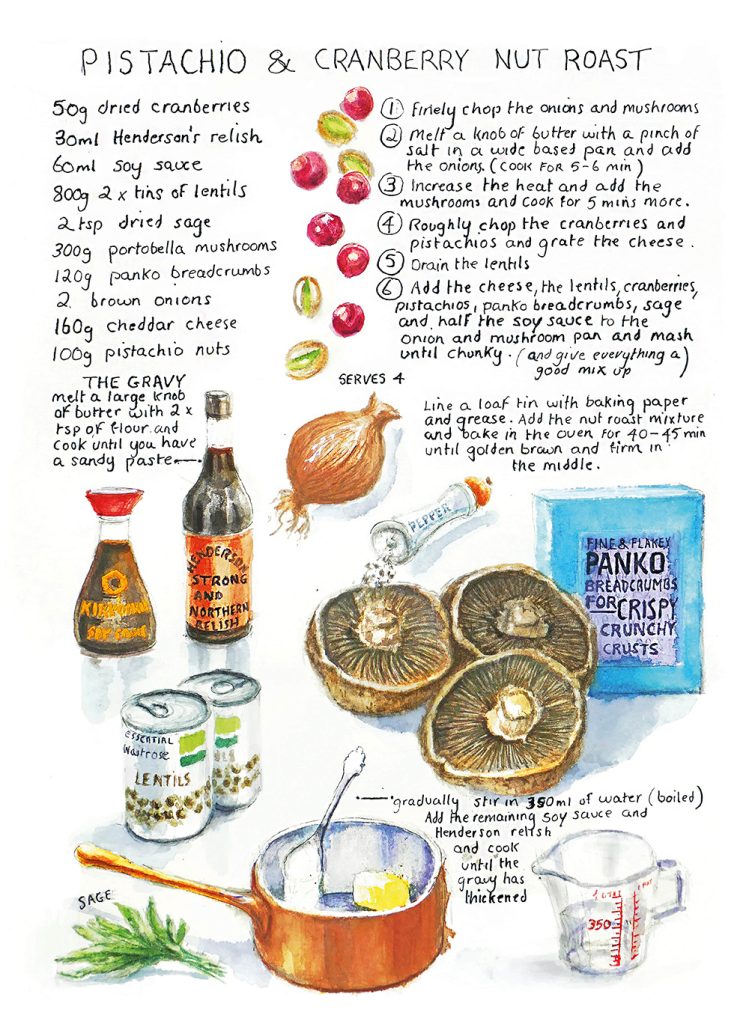 PISTACHIO & CRANBERRY NUT ROAST
50g dried cranberries
30ml Henderson's relish
60ml soy sauce
800g 2 x tins of lentils
2 tsp dried sage
300g portobella mushrooms
120g panko breadcrumbs
2 brown onions
160g cheddar cheese
100g pistachio nuts
① Finely chop the onions and mushrooms
② Melt a knob of butter with a pinch of
salt in a wide based pan and add
the onions. (COOK FOR 5-6 min)
③ Increase the heat and add the
mushrooms and cook for 5 mins more.
④ Roughly chop the cranberries and
pistachios and grate the cheese.
⑤ Drain the lentils
⑥ Add the cheese, the lentils, cranberries,
pistachios, panko breadcrumbs, sage
and half the soy sauce to the
onion and mushroom pan and mash
until chunky. (and give everything a)
good mix up
SERVES 4
THE GRAVY
melt a large knob
of butter with 2 x
tsp of flour and
cook until you have
a sandy paste
Line a loaf tin with baking paper
and grease. Add the nut roast mixture
and bake in the oven for 40-45 min
until golden brown and firm in
the middle.
PEPPER
HENDERSONS
STRONG
AND
NORTHERN
RELISH
SOY SAUCE
FINE & FLAKEY
PANKO
BREADCRUMBS
FOR CRISPY
CRUNCHY
CRUSTS
ESSENTIAL
Waitrose
LENTILS
gradually stir in 350ml of water (boiled)
Add the remaining soy sauce and
Henderson relish
and cook
until the
gravy has
thickened
SAGE
350